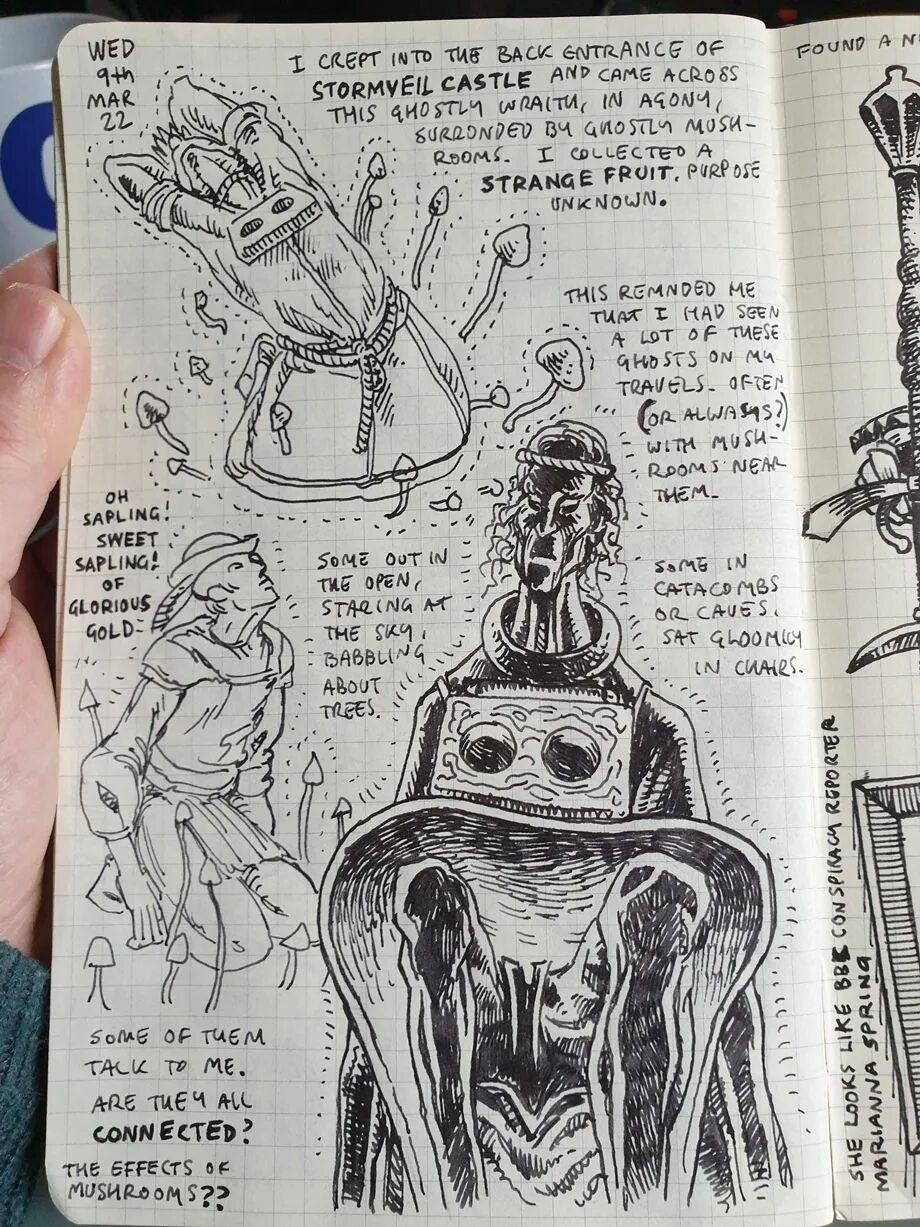 WED
9th
MAR
22
I CREPT INTO THE BACK ENTRANCE OF
STORMVEIL CASTLE AND CAME ACROSS
THIS GHOSTLY WRAITH, IN AGONY,
SURRONDED BY GHOSTLY MUSH-
ROOMS. I COLLECTED A
STRANGE FRUIT. PURPOSE
UNKNOWN.
THIS REMNDED ME
THAT I HAD SEEN
A LOT OF THESE
GHOSTS ON MY
TRAVELS. OFTEN
(OR ALWAYS?)
WITH MUSH-
ROOMS NEAR
THEM.
OH
SAPLING!
SWEET
SAPLING!
OF
GLORIOUS
GOLD~
SOME OUT IN
THE OPEN,
STARING AT
THE SKY,
BABBLING
ABOUT
TREES.
SOME IN
CATACOMBS
OR CAVES.
SAT GLOOMILY
IN CHAIRS.
SOME OF THEM
TALK TO ME.
ARE THEY ALL
CONNECTED?
THE EFFECTS OF
MUSHROOMS??
FOUND A
SHE LOOKS LIKE BBC CONSPIRACY REPORTER
MARIANNA SPRING